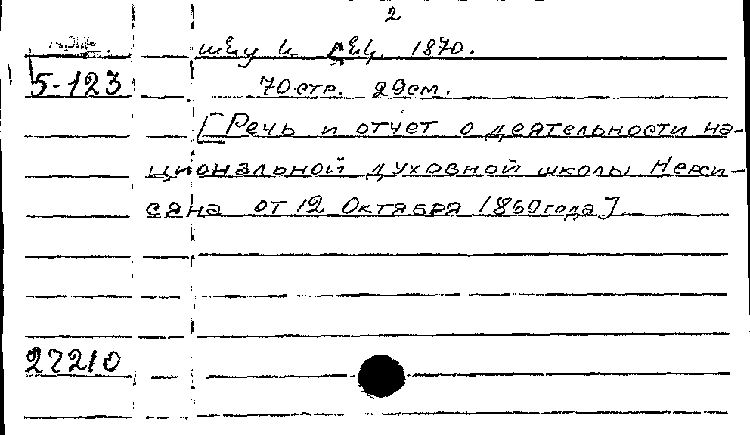 2
1870.
5-123
70 стр. 29 см.
[Речь и отчет о деятельности на-
циональной духовной школы Нерси-
сяна от 12 Октября 1860 года]
27210